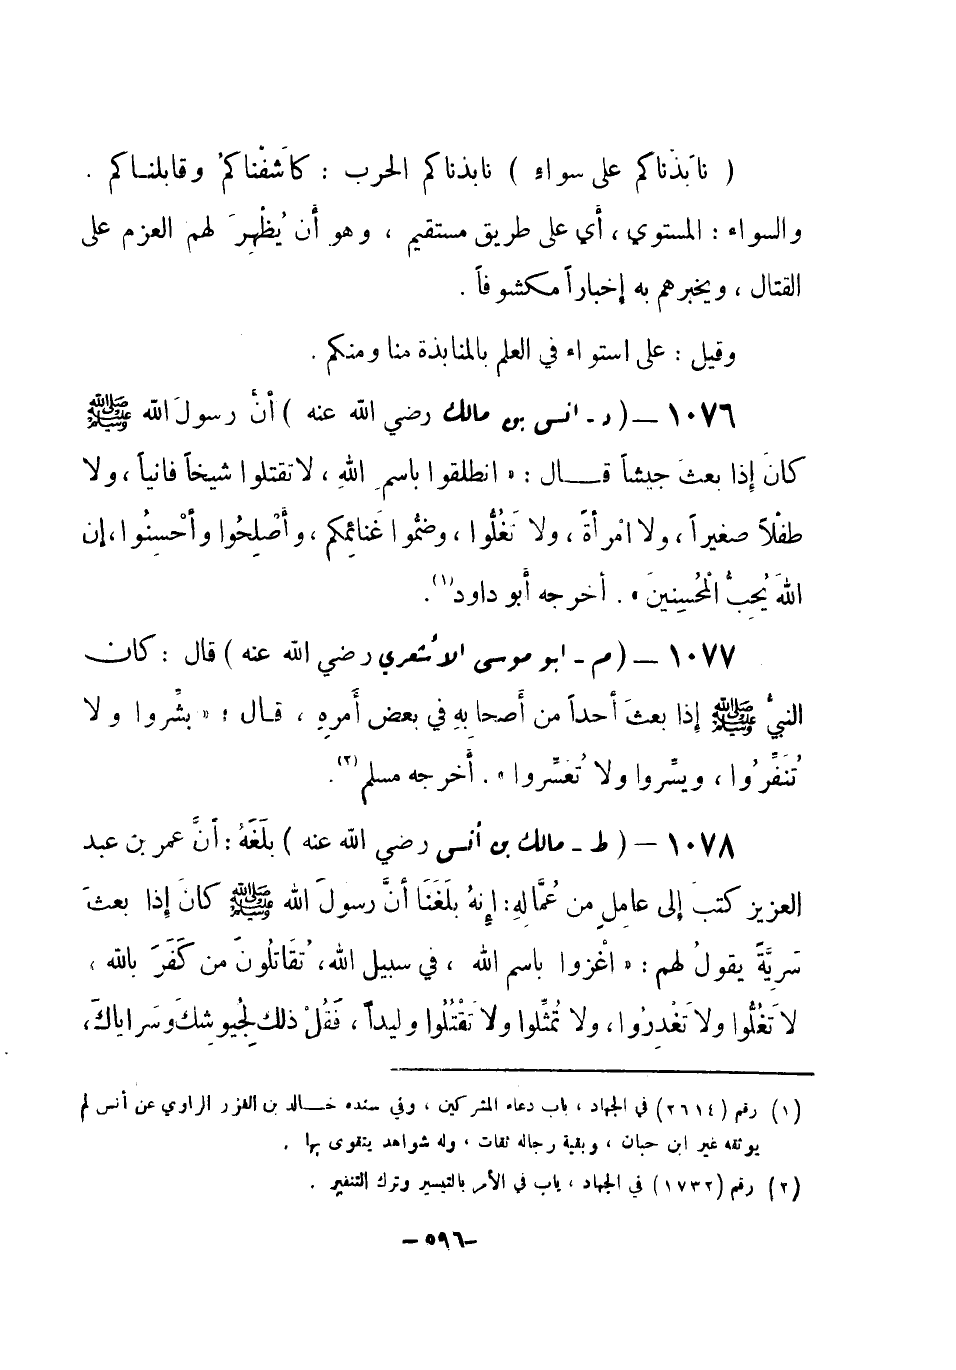 ( نابَذْناكم على سواء ) نابذناكم الحرب : كاشَفْناكم وقابلنـاكم .
والسواء : المستوي ، أي على طريق مستقيم ، وهو أن يُظْهِرَ لهم العزم على
القتال ، ويخبرهم به إخباراً مكشوفاً .
وقيل : على استواء في العلم بالمنابذة منا ومنكم .
١٠٧٦ – ( د - أنس بن مالك رضي الله عنه ) أنَّ رسولَ الله ﷺ
كانَ إذا بعثَ جيشاً قـــال : « انطلقوا باسمِ اللهِ ، لا تقتلوا شيخاً فانياً ، ولا
طفْلاً صغيراً ، ولا امْرأةً ، ولا تَغُلُّوا ، وضمُّوا غَنائِمكم ، وأَصْلِحُوا وأَحْسِنُوا ، إن
اللهَ يُحِبُّ الْمُحْسِنِينَ » . أخرجه أبو داود(١).
١٠٧٧ – ( م - أبو موسى الأشعري رضي الله عنه ) قال : كان
النبيُّ ﷺ إذا بعثَ أحداً من أصحابِهِ في بعض أمرِهِ ، قـال : « بشِّروا ولا
تُنَفِّرُوا ، ويسِّروا ولا تُعَسِّروا » . أخرجه مسلم(٢).
١٠٧٨ – ( ط - مالك بن أنس رضي الله عنه ) بلَغَهُ : أنَّ عمر بن عبد
العزيز كتبَ إلى عامِلٍ من عُمَّالِهِ : إنهُ بلَغَنَا أنَّ رسولَ الله ﷺ كانَ إذا بعثَ
سَرِيَّةً يقولُ لهم : « اغْزوا باسم الله ، في سبيل الله ، تُقَاتلُونَ من كَفَرَ بالله ،
لا تَغُلُّوا ولا تَغْدِرُوا ، ولا تُمثِّلوا ولا تَقْتُلُوا وليداً ، فَقُلْ ذلك لِجُيوشِكَ وسَراياكَ ،
(١) رقم (٢٦١٤) في الجهاد ، باب دعاء المشركين ، وفي سنده خـــالد بن الفزر الراوي عن أنس لم
يوثقه غير ابن حبان ، وبقية رجاله ثقات ، وله شواهد يتقوى بها .
(٢) رقم (١٧٣٢) في الجهاد ، باب في الأمر بالتيسير وترك التنفير .
– ٥٩٦ –